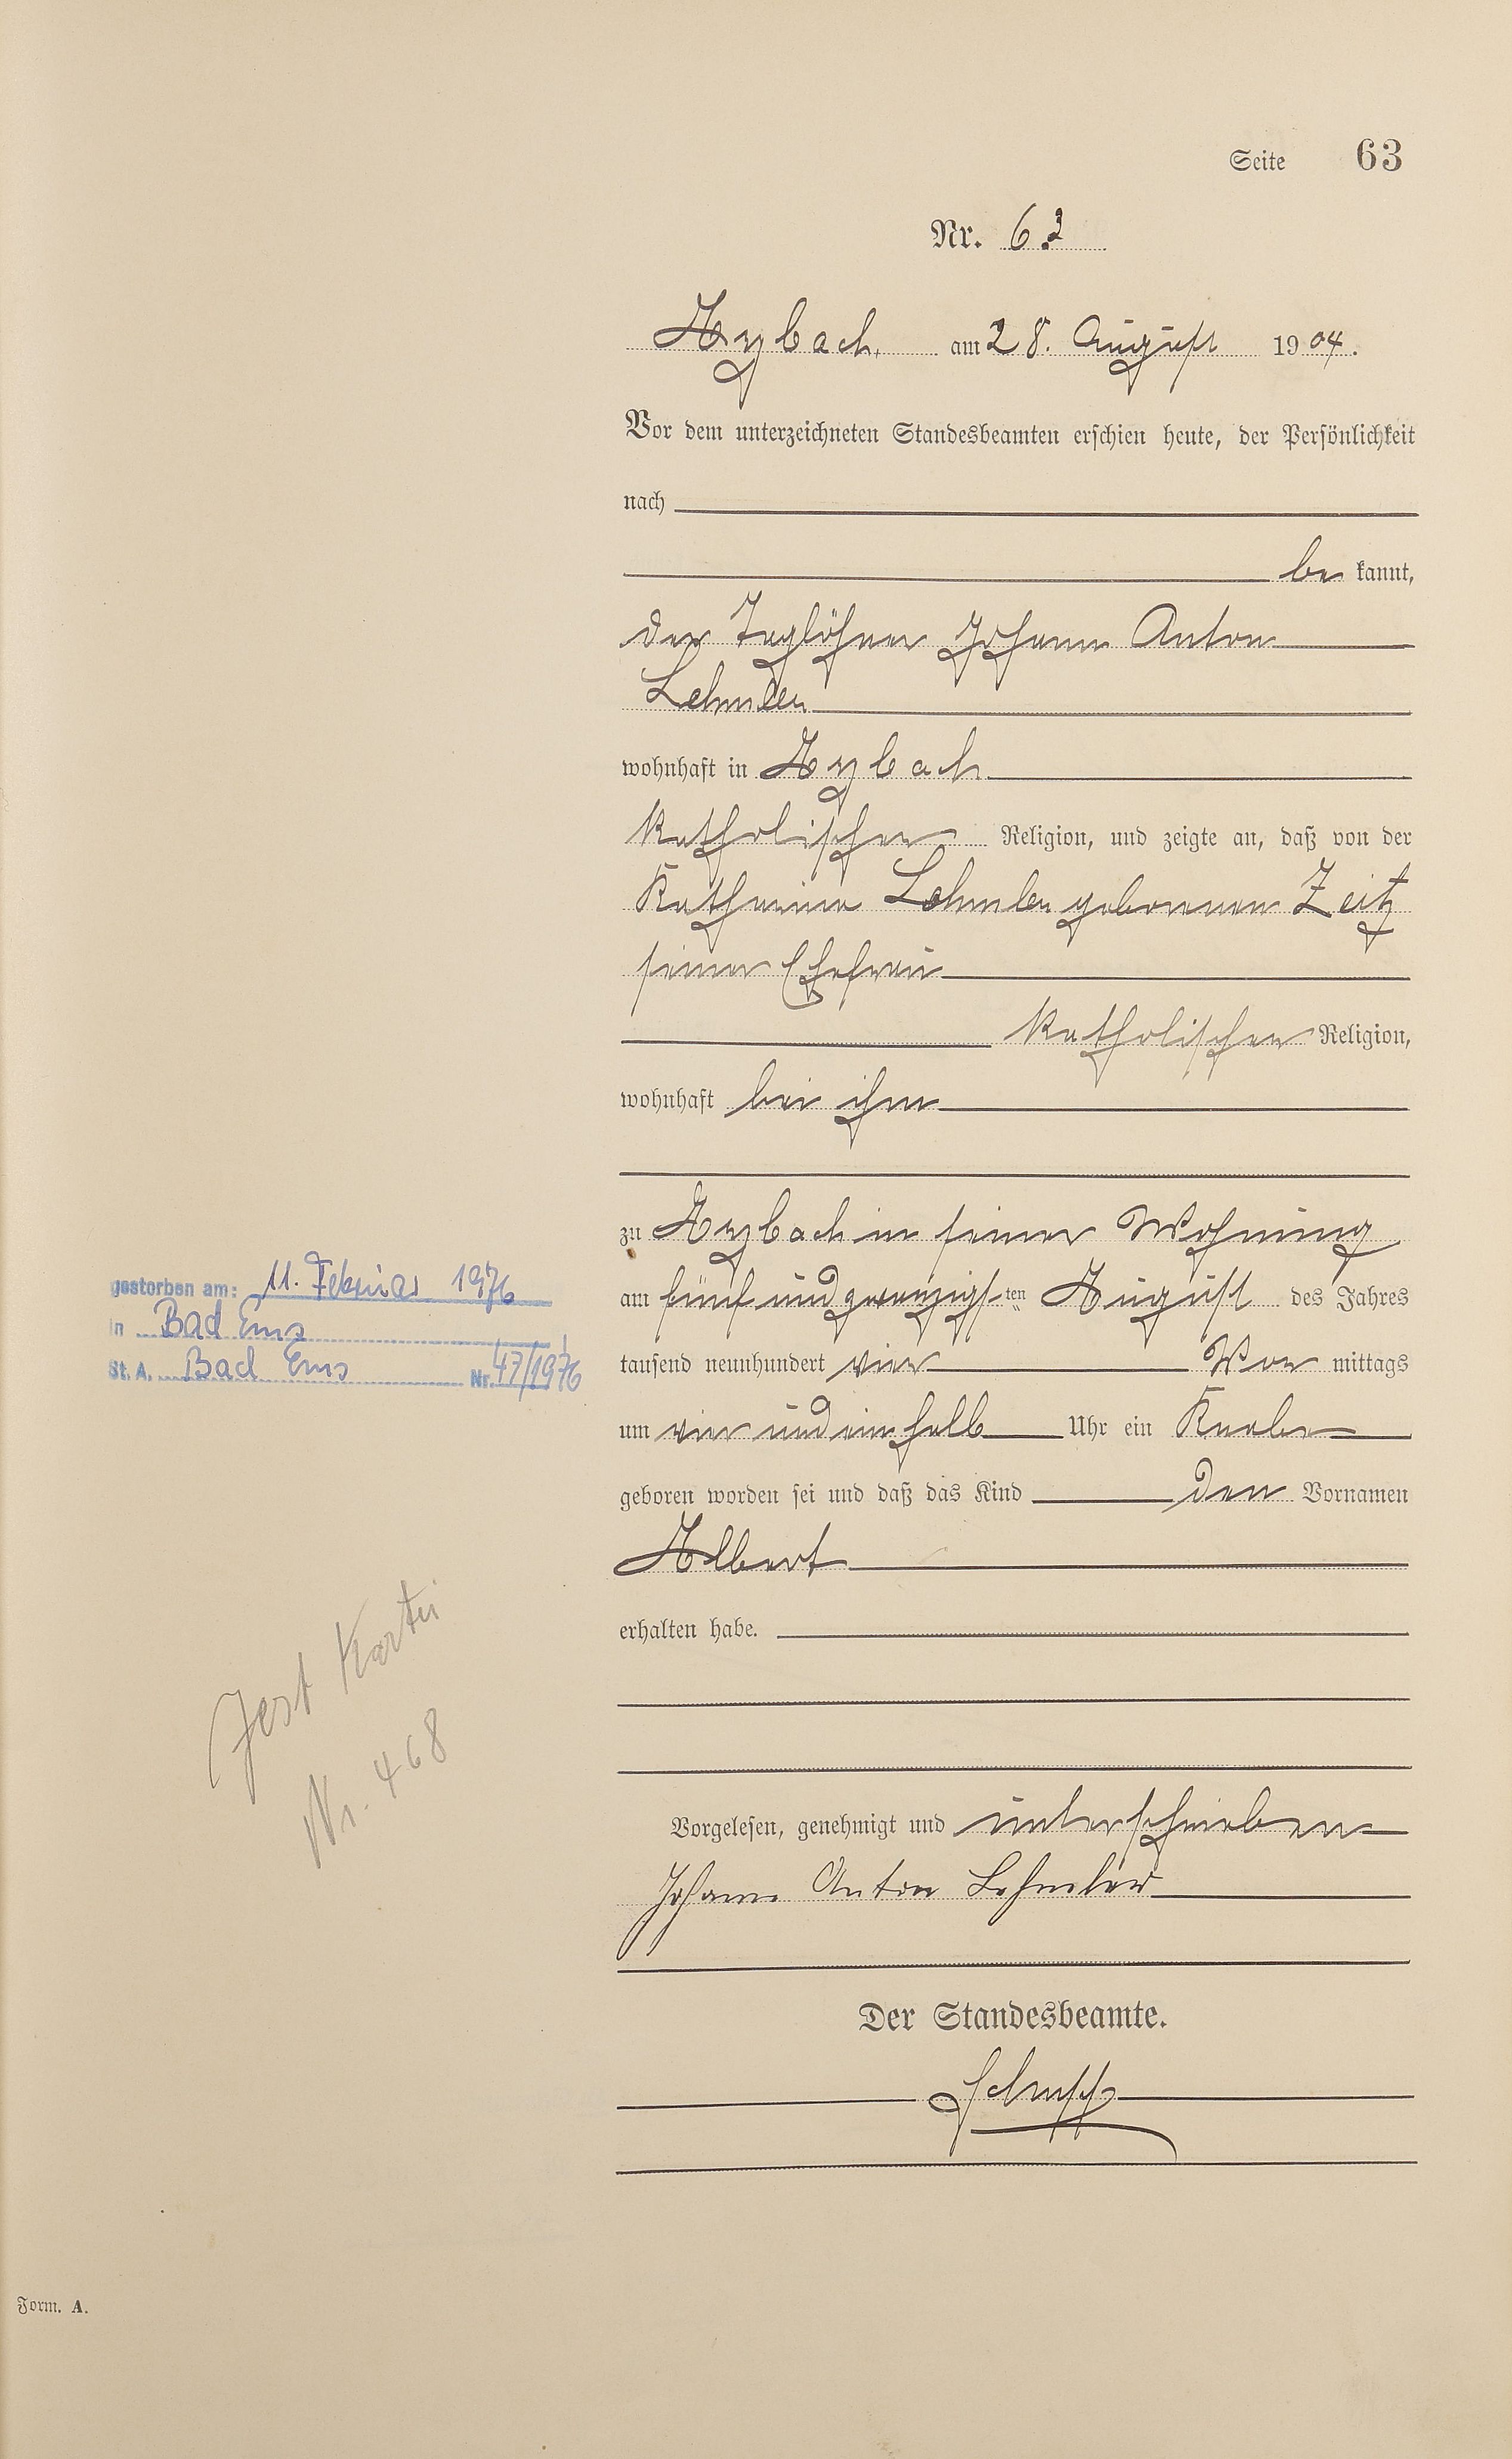 Seite 63
Nr. 63
Arzbach, am 28. August 1904.
Vor dem unterzeichneten Standesbeamten erschien heute, der Persönlichkeit
nach
be kannt,
der Taglöhner Johann Anton
Lehmler
wohnhaft in Arzbach
katholischer Religion, und zeigte an, daß von der
Katharina Lehmler geborenen Zeitz
seiner Ehefrau
katholischer Religion,
wohnhaft bei ihm
zu Arzbach in seiner Wohnung
am fünf und zwanzigsten August des Jahres
tausend neunhundert vier Vor mittags
um vier und ein halb Uhr ein Knabe
geboren worden sei und daß das Kind den Vornamen
Albert
erhalten habe.
Vorgelesen, genehmigt und unterschrieben
Johann Anton Lehmler
Der Standesbeamte.
gestorben am: 11. Februar 1976
in Bad Ems
St. A. Bad Ems Nr. 47/1976
Kartei
Nr. 468
Form. A.